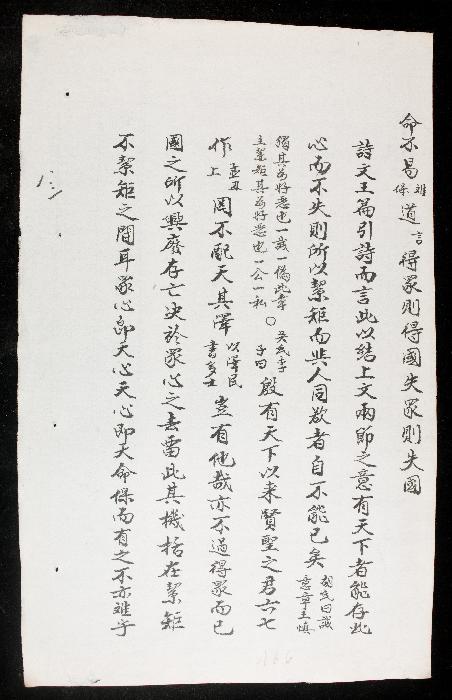 命不易難保道言得眾則得國失眾則失國
詩文王篇引詩而言此以結上文兩節之意有天下者能存此
心而不失則所以絜矩而與人同欲者自不能已矣胡氏曰誠意章主慎
獨其為好惡也一誠一偽此章主絜矩其為好惡也一公一私○吳氏季子曰殷有天下以來賢聖之君六七
作孟丑上罔不配天其澤以澤民書多士豈有他哉亦不過得眾而已
國之所以興廢存亡決於眾心之去留此其機括在絜矩
不絜矩之間耳眾心即天心天心即天命保而有之不亦難乎